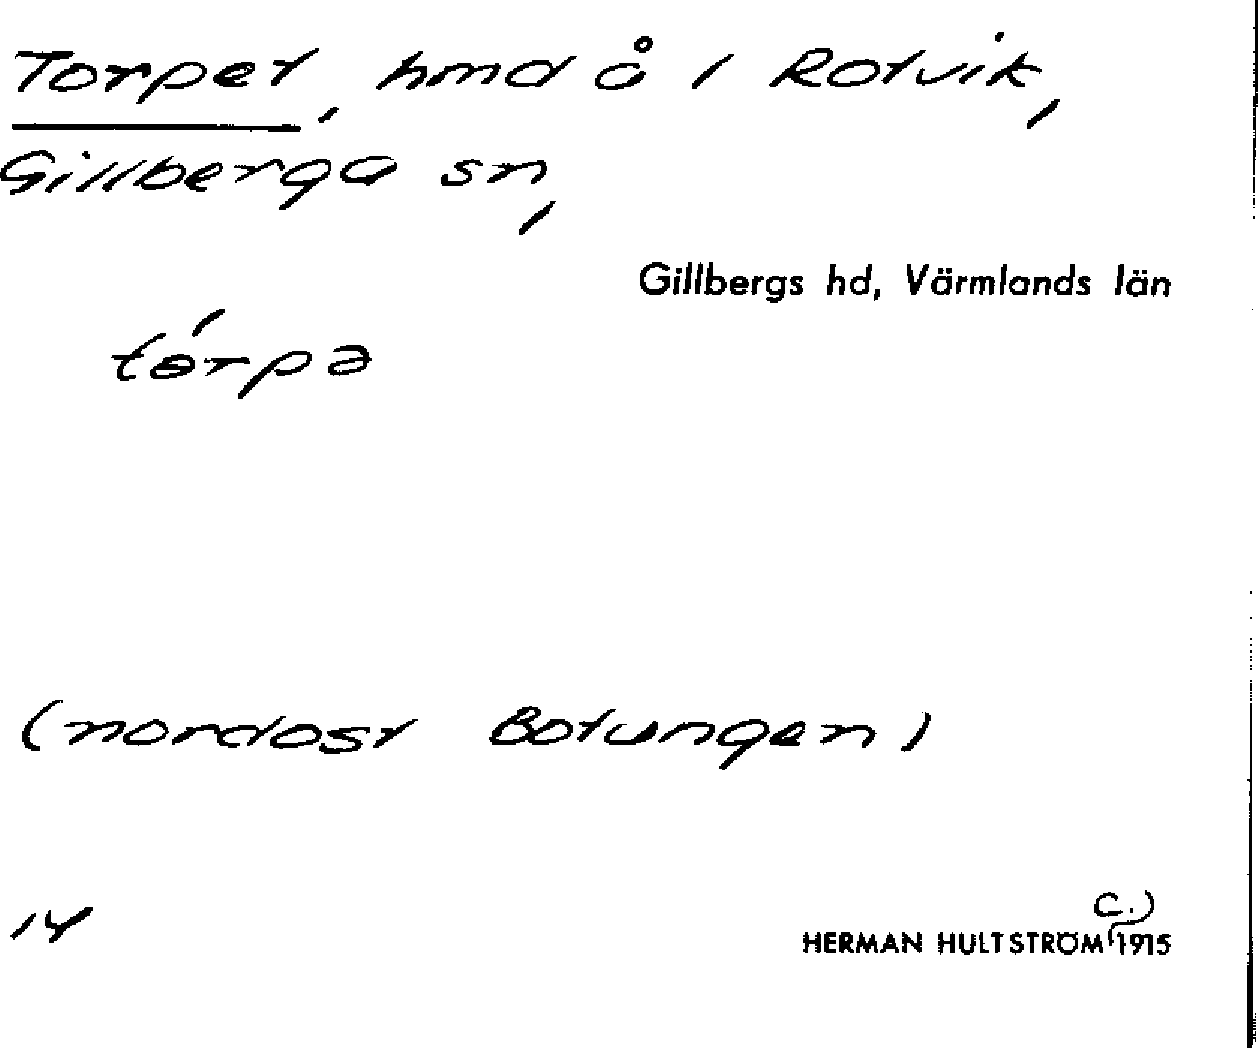 Torpet, hmd å 1 Rotvik,
Gillberga sn,
Gillbergs hd, Värmlands län
tórpə
(nordost Botungen)
14
c.)
HERMAN HULTSTRÖM 1915